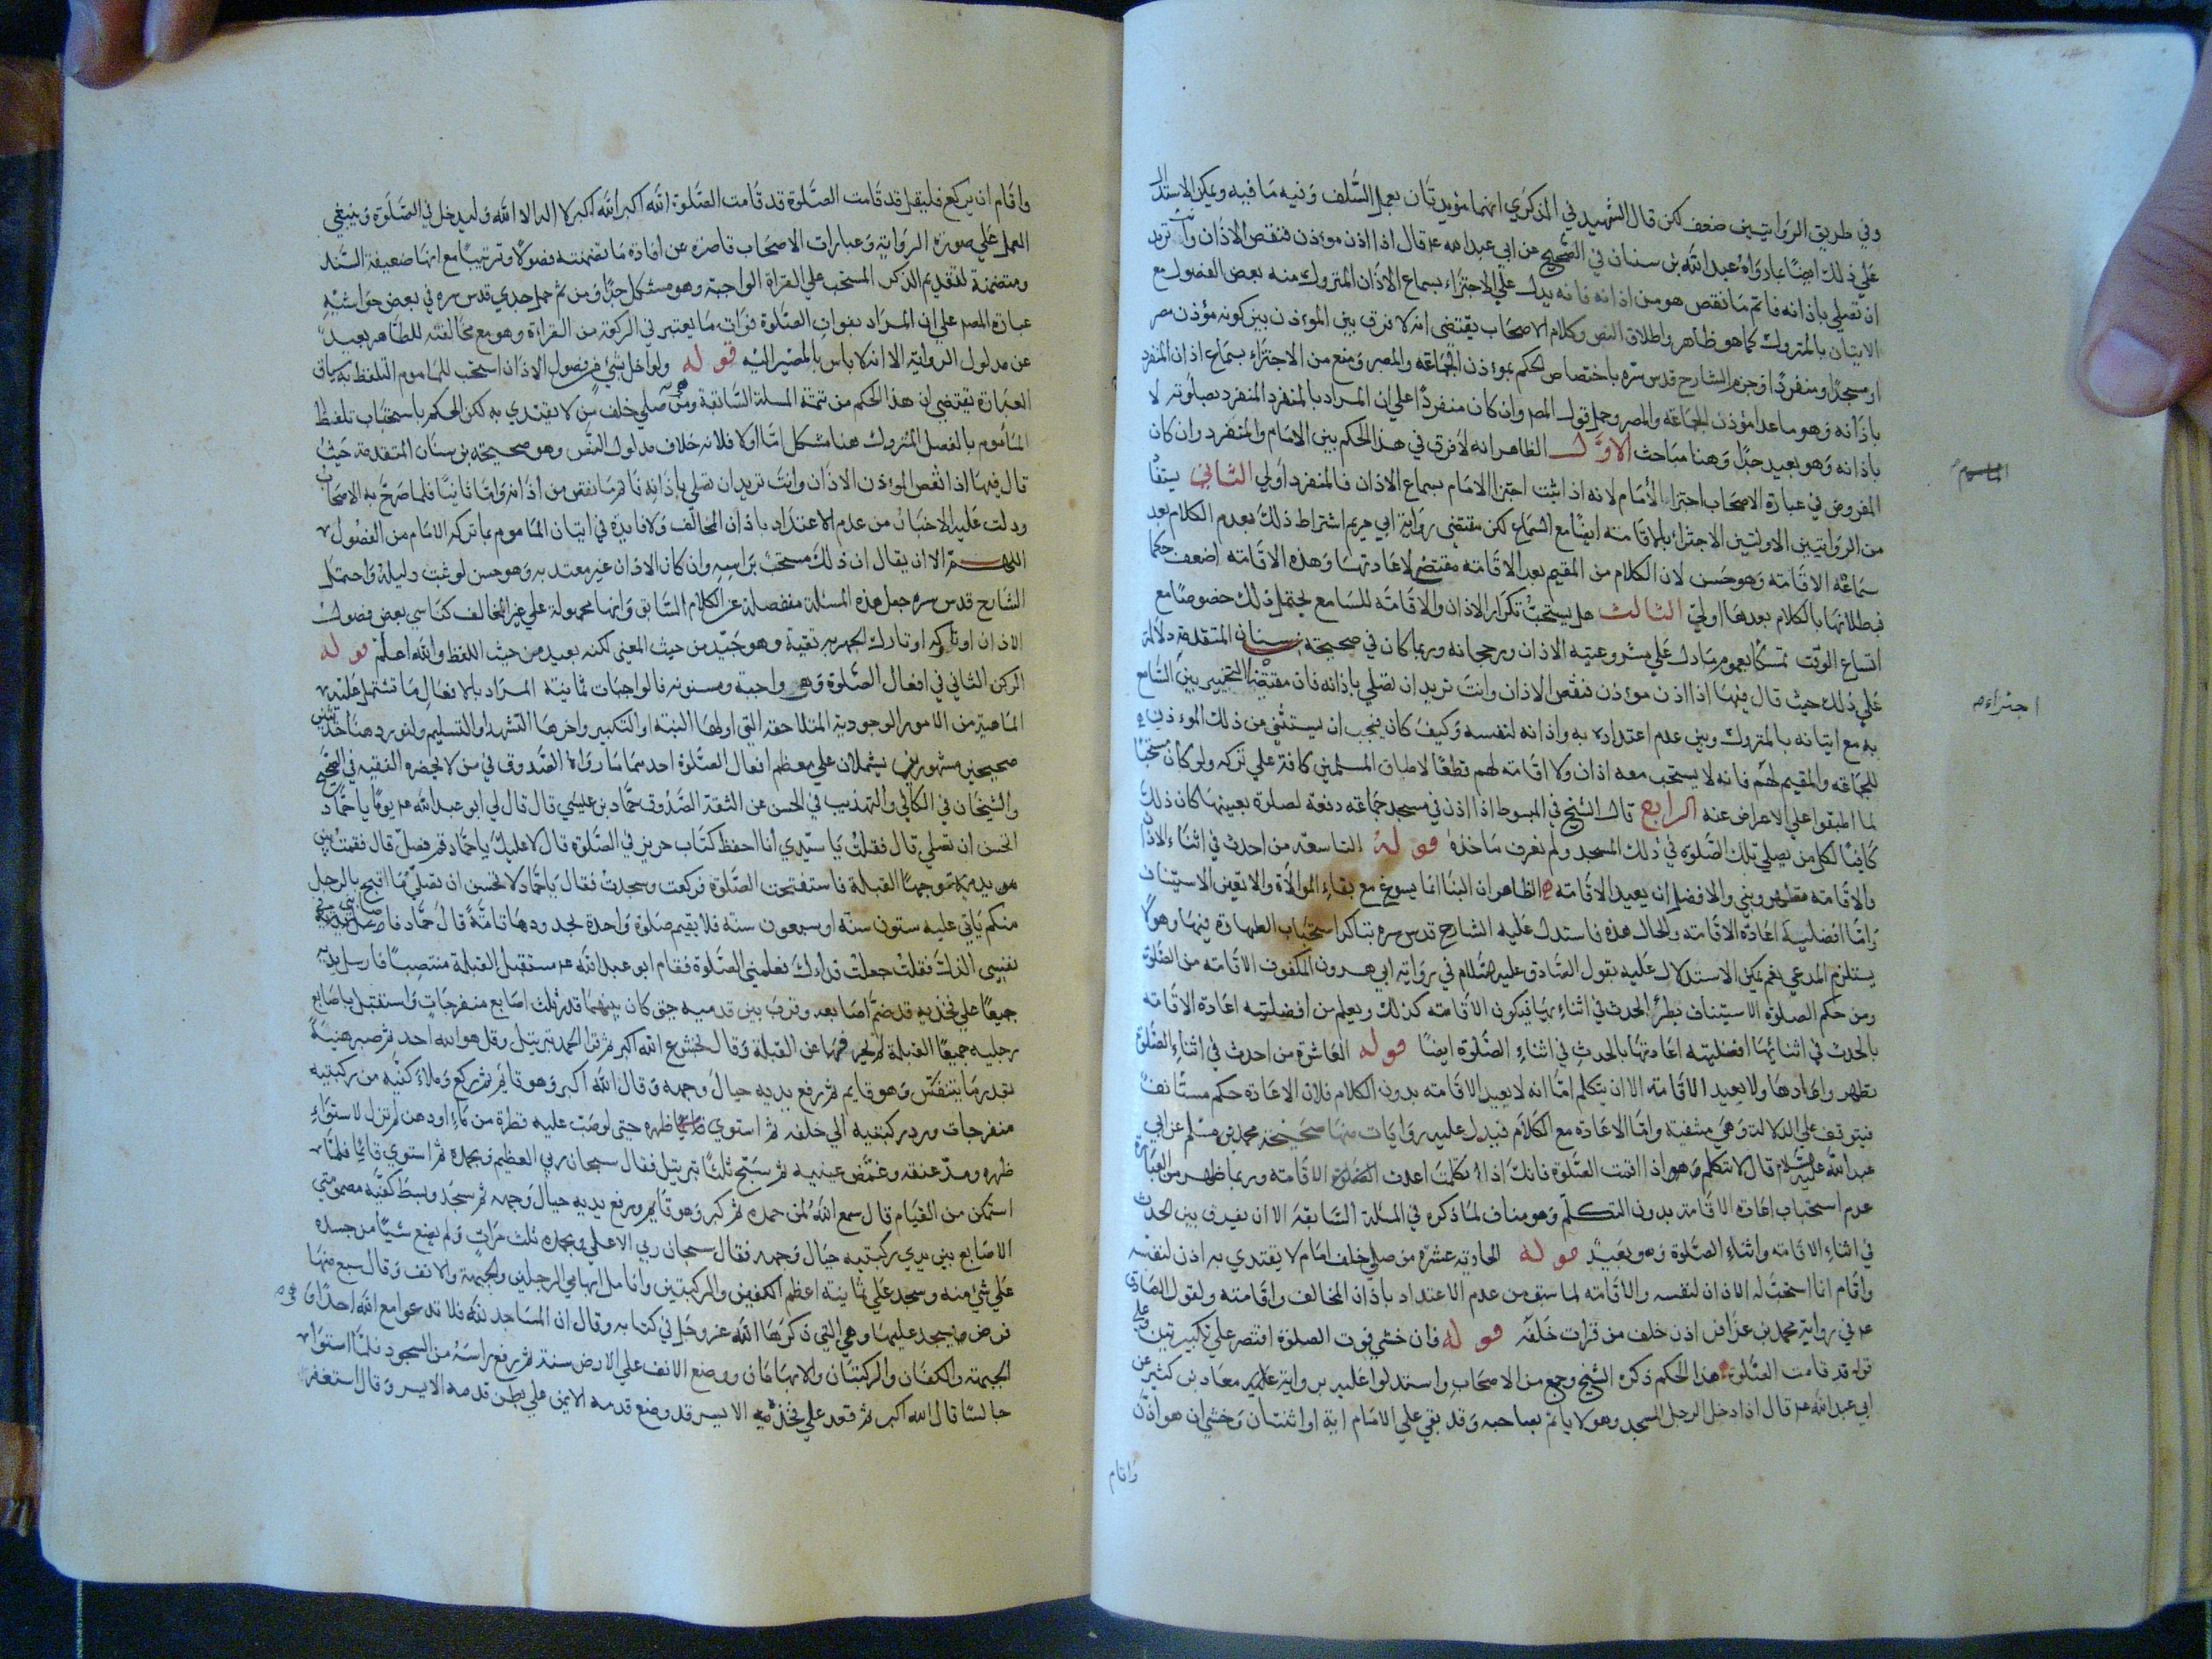 وفي طريق الروايتين ضعف لكن قال الشهيد في الذكرى انهما مؤيدتان بعمل السلف وفيه ما فيه ويمكن الاستدلال
على ذلك ايضا بما رواه عبد الله بن سنان في الصحيح عن ابي عبد الله ع قال اذا اذن موءذن فنقص الاذان وانت تريد
ان تصلي باذانه فاتم ما نقص هو من اذانه فانه يدل على الاجتزاء بسماع الاذان المتروك منه بعض الفصول مع
الاتيان بالمتروك كما هو ظاهر واطلاق النص وكلام الاصحاب يقتضي انه لا فرق بين الموءذن بين كونه مؤذن مصر
او مسجد او منفردا وجزم الشارح قدس سره باختصاص الحكم بموءذن الجماعة والمصر ومنع من الاجتزاء بسماع اذان المنفرد
باذانه وهو ما عدا مؤذن الجماعة والمصر وحمل قول المص وان كان منفردا على ان المراد بالمنفرد المنفرد بصلوته لا
باذانه وهو بعيد جدا وهنا مباحث الاول الظاهر انه لا فرق في هذا الحكم بين الامام والمنفرد وان كان
المفروض في عبارة الاصحاب اجتزاء الامام لانه اذا ثبت اجتزا الامام بسماع الاذان فالمنفرد اولى الثاني يستفا
من الروايتين الاولتين الاجتزاء بالاقامته ايضا مع السماع لكن مقتضى رواية ابي مريم اشتراط ذلك بعدم الكلام بعد
سماعه الاقامته وهو حسن لان الكلام من المقيم بعد الاقامته مقتض لاعادتها وهذه الاقامته اضعف حكما
فبطلانها بالكلام بعدها اولى الثالث هل يستحب تكرار الاذان والاقامته للسامع يحتمل ذلك خصوصا مع
اتساع الوقت تمسكا بعموم ما دل على مشروعيته الاذان ورجحانه وربما كان في صحيحته بن سنان المتقدمة دلالة
على ذلك حيث قال فيها اذا اذن موءذن فنقص الاذان وانت تريد ان تصلي باذانه فان مقتضاه التخيير بين التسامع
به مع اتيانه بالمتروك وبين عدم اعتداده به واذانه لنفسه وكيف كان فيجب ان يستثنى من ذلك الموءذن
للجماعة والمقيم لهم فانه لا يستحب معه اذان ولا اقامته لهم قطعا لاطباق المسلمين كافة على تركه ولو كان مستحبا
لما اطبقوا على الاعراض عنه الرابع قال الشيخ في المبسوط اذا اذن في مسجد جماعة دفعة لصلوة بعينها كان ذلك
كافيا لكل من يصلي تلك الصلوة في ذلك المسجد ولم نعرف ماخذه قوله التاسعة من احدث في اثناء الاذان
والاقامته تطهر وبنى والافضل ان يعيد الاقامته الظاهر ان البنا انما يسوغ مع بقاء الموالاة والا تعين الاستيناف
واما افضلية اعادة الاقامته والحال هذه فاستدل عليه الشارح قدس سره بتاكد استحباب الطهارة فيها وهو لا
يستلزم المدعى نعم يمكن الاستدلال عليه بقول الصادق عليه السلام في رواية ابي هرون المكفوف الاقامته من الصلوة
ومن حكم الصلوة الاستيناف بطرؤ الحدث في اثنائها فيكون الاقامته كذلك ويعلم من افضليته اعادة الاقامته
بالحدث في اثنائها افضليته اعادتها بالحدث في اثناء الصلوة ايضا قوله العاشرة من احدث في اثناء الصلوة
تطهر واعادها ولا يعيد الاقامته الا ان يتكلم اما انه لا يعيد الاقامته بدون الكلام فلان الاعادة حكم مستانف
فيتوقف على الدلالة وهي منتفية واما الاعادة مع الكلام فيدل عليه روايات منها صحيحة محمد بن مسلم عن ابي
عبد الله عليه السلام قال لا تتكلم اذا اقمت الصلوة فانك اذا تكلمت اعدت الاقامته وربما ظهر من العبارة
عدم استحباب اعادة الاقامة بدون التكلم وهو مناف لما ذكره في المسئلة السابقة الا ان يفرق بين الحدث
في اثناء الاقامته واثناء الصلوة وهو بعيد قوله الحادية عشرة من صلى خلف امام لا يقتدى به اذن لنفسه
واقام انما استحب له الاذان لنفسه والاقامته لما سبق من عدم الاعتداد باذان المخالف واقامته ولقول الصادق
ع في رواية محمد بن عذافر اذن خلف من قرات خلفه قوله فان خشي فوت الصلوة اقتصر على تكبيرتين وعلى
قوله قد قامت الصلوة هذا الحكم ذكره الشيخ وجمع من الاصحاب واستدلوا عليه برواية معاذ بن كثير عن
ابي عبد الله ع قال اذا دخل الرجل المسجد وهو لا ياتم بصاحبه وقد بقي على الامام اية او اثنتان وخشي ان هو اذن
واقام
اجتزاءه
واقام ان يركع فليقل قد قامت الصلوة قد قامت الصلوة الله اكبر الله اكبر لا اله الا الله وليدخل في الصلوة وينبغي
العمل على صورة الرواية وعبارات الاصحاب قاصرة عن افادة ما تضمنته فصولا وترتيبا مع انها ضعيفة السند
ومتضمنة لتقديم الذكر المستحب على القراة الواجبة وهو مشكل جدا ومن ثم حمل جدي قدس سره في بعض حواشيه
عبارة المص على ان المراد بفوات الصلوة فوات ما يعتبر في الركعة من القراءة وهو مع مخالفته للظاهر بعيد
عن مدلول الرواية الا انه لا باس بالمصير اليه قوله ولو اخل بشئ من فصول الاذان استحب للماموم التلفظ به سياق
العبارة يقتضي ان هذا الحكم من تتمة المسلة السابقة وهي من صلى خلف من لا يقتدى به لكن الحكم باستحباب تلفظ
المأموم بالفصل المتروك هنا مشكل اما اولا فلانه خلاف مدلول النص وهو صحيحته بن سنان المتقدمة حيث
قال فيها اذا نقص الموءذن الاذان وانت تريد ان تصلي باذانه فاتم ما نقص من اذانه واما ثانيا فلما صرح به الاصحاب
ودلت عليه الاخبار من عدم الاعتداد باذان المخالف ولا فائدة في اتيان الماموم بما تركه الامام من الفصول
اللهم الا ان يقال ان ذلك مستحب براسه وان كان الاذان غير معتد به وهو حسن لو ثبت دليله واحتمل
الشارح قدس سره جعل هذه المسئلة منفصلة عن الكلام السابق وانها محمولة على غير المخالف كناسي بعض فصول
الاذان او تاركه او تارك الجهر به تقية وهو جيد من حيث المعنى لكنه بعيد من حيث اللفظ والله اعلم قوله
الركن الثاني في افعال الصلوة وهي واجبة ومسنونه فالواجبات ثمانية المراد بالافعال ما تشتمل عليه
الماهية من الامور الوجودية المتلاحقة التي اولها النية او التكبير واخرها التشهد او التسليم ولنورد هنا حديثين
صحيحين مشهورين يشملان على معظم افعال الصلوة احدهما ما رواه الصدوق في من لا يحضره الفقيه في الصحيح
والشيخان في الكافي والتهذيب في الحسن عن الثقة الصدوق حماد بن عيسى قال قال لي ابو عبد الله ع يوما يا حماد
اتحسن ان تصلي قال فقلت يا سيدي انا احفظ كتاب حريز في الصلوة قال لا عليك يا حماد قم فصل قال فقمت بين
يديه متوجها القبلة فاستفتحت الصلوة فركعت وسجدت فقال يا حماد لا تحسن ان تصلي ما اقبح بالرجل
منكم ياتي عليه ستون سنة او سبعون سنة فلا يقيم صلوة واحدة بحدودها تامة قال حماد فاصابني في
نفسي الذل فقلت جعلت فداءك فعلمني الصلوة فقام ابو عبد الله ع مستقبل القبلة منتصبا فارسل يديه
جميعا على فخذيه قد ضم اصابعه وقرب بين قدميه حتى كان بينهما قدر ثلث اصابع منفرجات واستقبل باصابع
رجليه جميعا القبلة لم يحرفهما عن القبلة وقال بخشوع الله اكبر ثم قرا الحمد بترتيل وقل هو الله احد ثم صبر هنية
بقدر ما يتنفس وهو قايم ثم رفع يديه حيال وجهه وقال الله اكبر وهو قايم ثم ركع وملا كفيه من ركبتيه
منفرجات ورد ركبتيه الى خلفه ثم استوى ظهره حتى لو صب عليه قطرة من ماء او دهن لم تزل لاستواء
ظهره ومد عنقه وغمض عينيه ثم سبح ثلثا بترتيل فقال سبحان ربي العظيم وبحمده ثم استوى قائما فلما
استمكن من القيام قال سمع الله لمن حمده ثم كبر وهو قايم ورفع يديه حيال وجهه ثم سجد وبسط كفيه مضمومتي
الاصابع بين يدي ركبتيه حيال وجهه فقال سبحان ربي الاعلى وبحمده ثلث مرات ولم يضع شيئا من جسده
على شئ منه وسجد على ثمانية اعظم الكفين والركبتين وانامل ابهامي الرجلين والجبهة والانف وقال سبع منها
فرض يسجد عليها وهي التي ذكرها الله عز وجل في كتابه وقال ان المساجد لله فلا تدعوا مع الله احدا وهي
الجبهة والكفان والركبتان والابهامان ووضع الانف على الارض سنة ثم رفع راسه من السجود فلما استوى
جالسا قال الله اكبر ثم قعد على فخذه الايسر قد وضع قدمه الايمن على بطن قدمه الايسر وقال استغفر